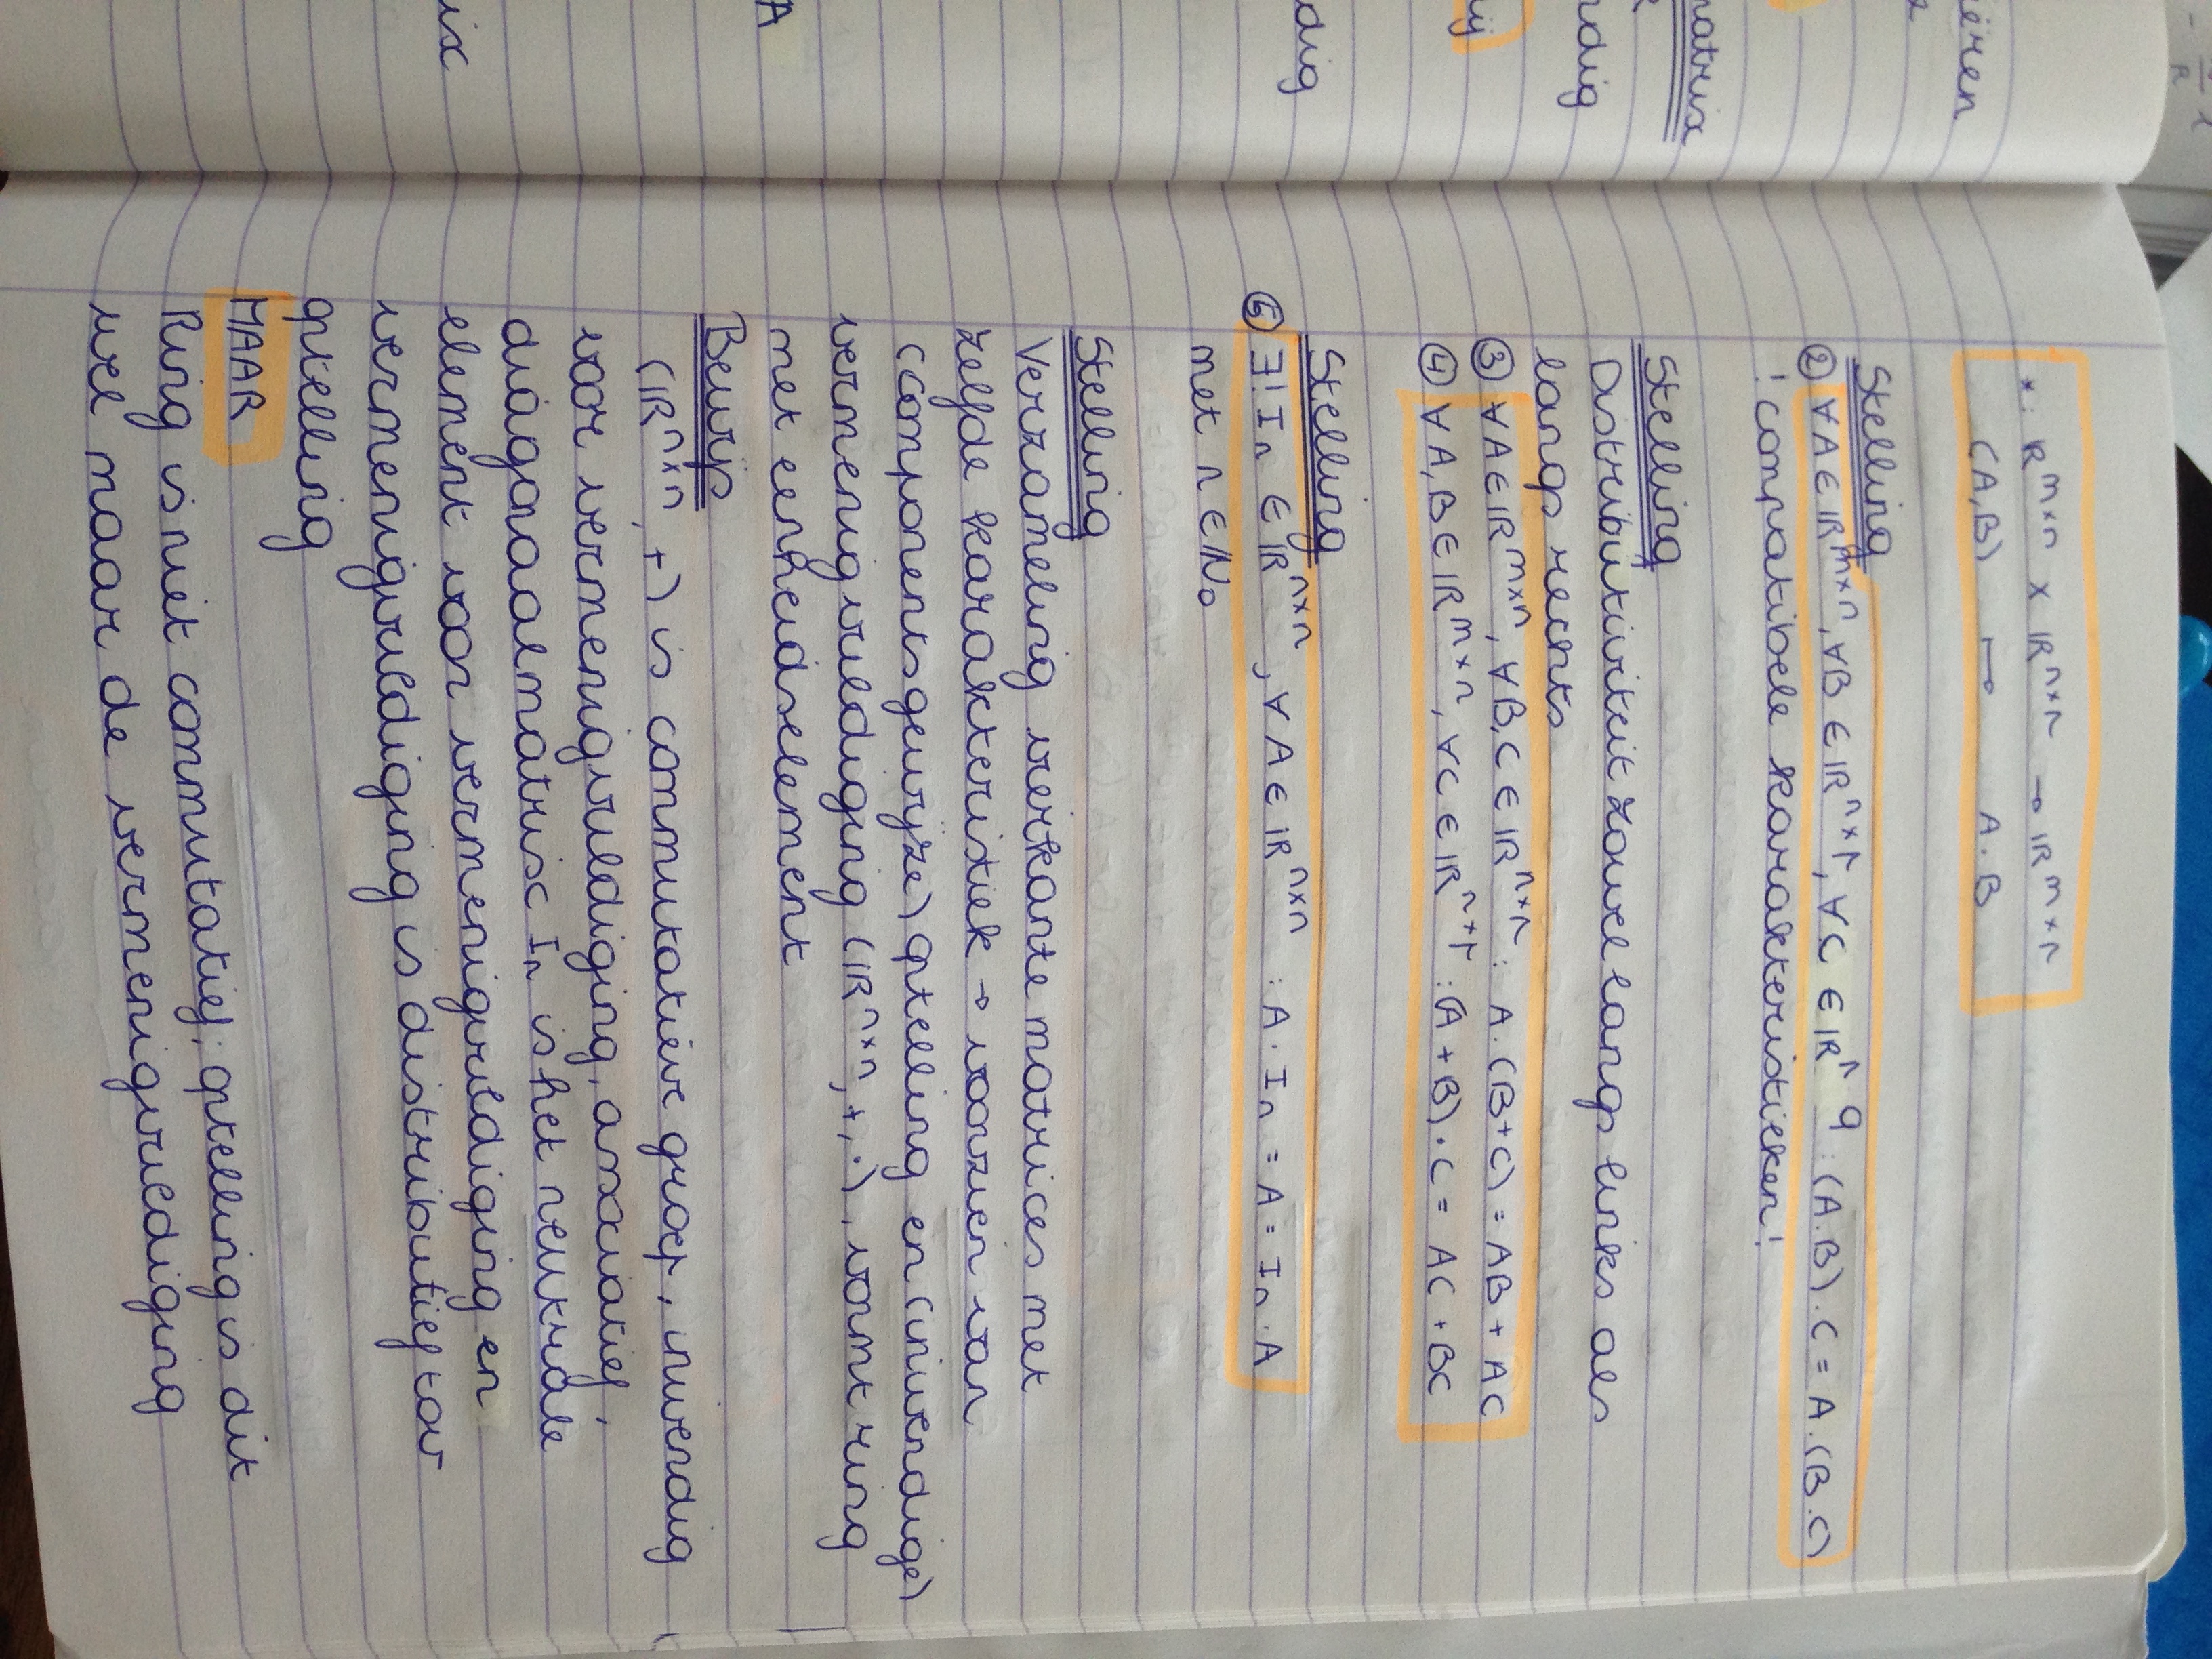 ieren
matrix
ndig
ij
dig
A
ix
* : R^m×n x ℝ^n×n → ℝ^m×n
(A,B) ↦ A.B
Stelling
② ∀A ∈ ℝ^m×n, ∀B ∈ ℝ^n×p, ∀C ∈ ℝ^n q : (A.B).C = A.(B.C)
! compatibele karakteristieken!
Stelling
Distributiviteit zowel langs links als
langs rechts
③ ∀A ∈ ℝ^m×n, ∀B,C ∈ ℝ^n×n : A.(B+C) = AB + AC
④ ∀A,B ∈ ℝ^m×n, ∀C ∈ ℝ^n×p : (A+B).C = AC + BC
Stelling
⑤ ∃! In ∈ ℝ^n×n, ∀A ∈ ℝ^n×n : A.In = A = In.A
met n ∈ ℕ₀
Stelling
Verzameling vierkante matrices met
zelfde karakteristiek → voorzien van
(componentsgewijze) optelling en (inwendige)
vermenigvuldiging (ℝ^n×n, +, .), vormt ring
met eenheidselement
Bewijs
(ℝ^n×n, +) is commutatieve groep, inwendig
voor vermenigvuldiging, associatief,
diagonaalmatrix In is het neutrale
element voor vermenigvuldiging en
vermenigvuldiging is distributief tov
optelling
MAAR
Ring is niet commutatief, optelling is dit
wel maar de vermenigvuldiging